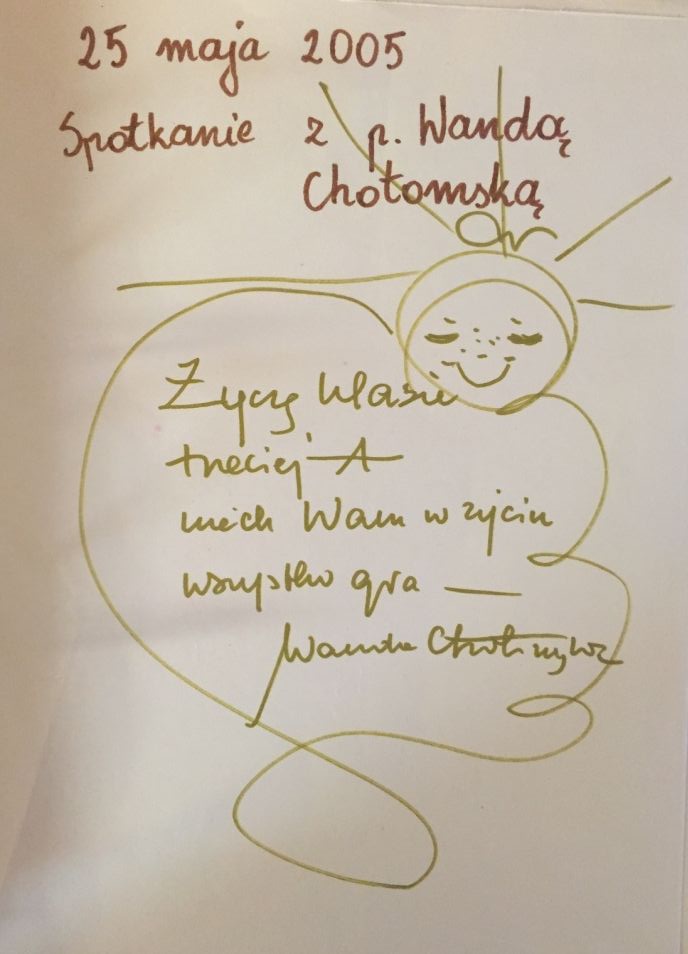 25 maja 2005
Spotkanie z p. Wandą
Chotomską
Życzę klasie
trzeciej A
niech Wam w życiu
wszystko gra —
Wanda Chotomska